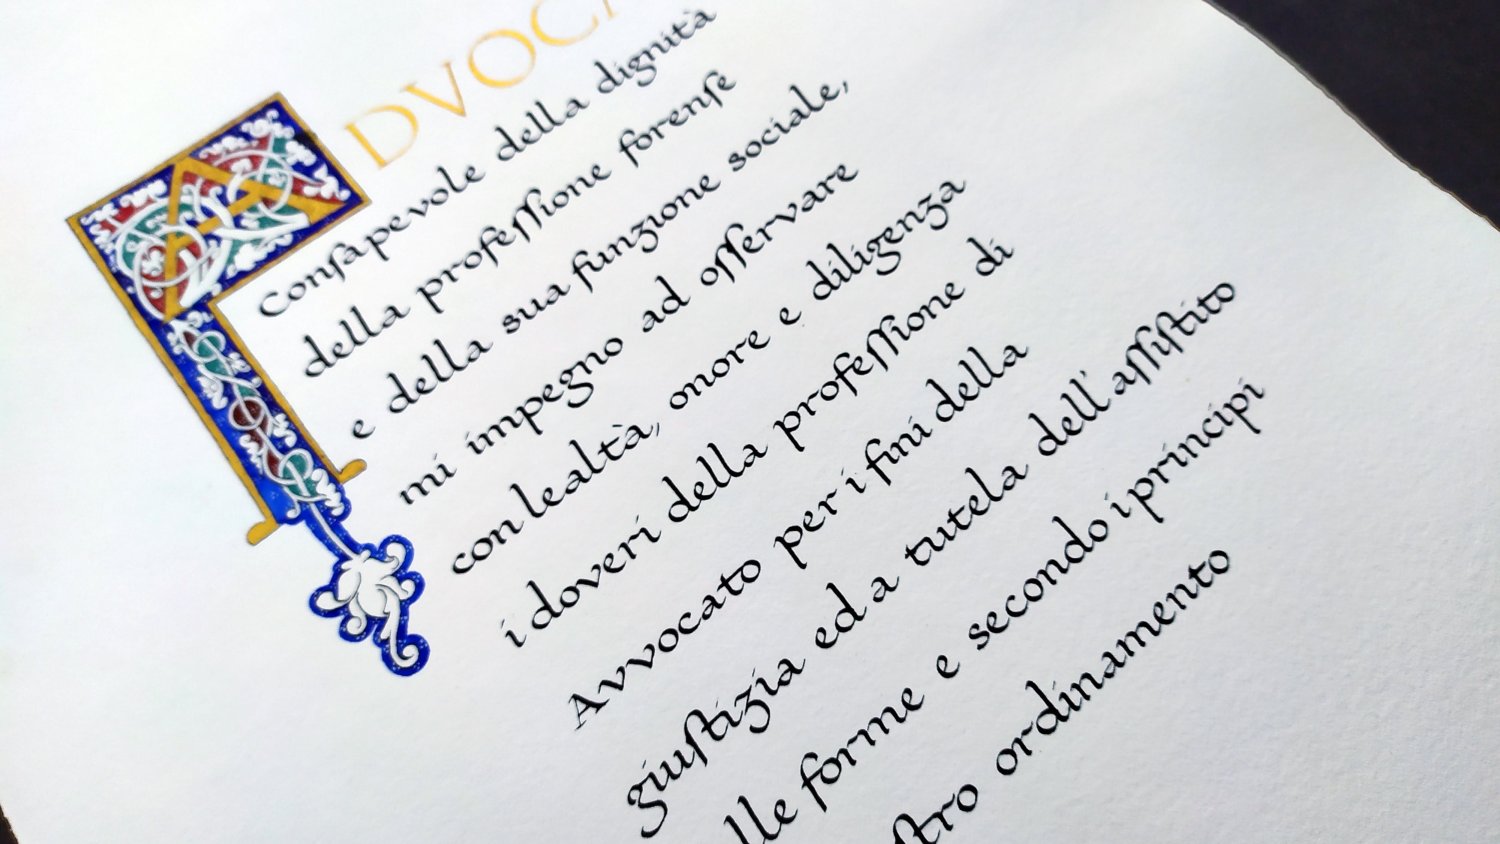 ADVOCA
Conſapevole della dignità
della profeſſione forenſe
e della sua funzione sociale,
mi impegno ad oſſervare
con lealtà, onore e diligenza
i doveri della profeſſione di
Avvocato per i fini della
giuſtizia ed a tutela dell'aſſiſtito
lle forme e secondo i principi
ſtro ordinamento